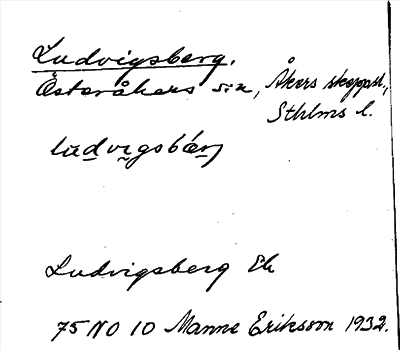 Ludvigsberg.
Österåkers sn, Åkers skeppsl.,
Sthlms l.
Ludvigsberg Ek
75 NO 10 Manne Eriksson 1932.